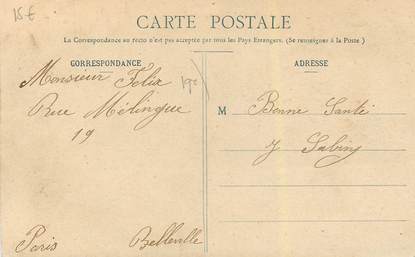 15€
CARTE POSTALE
La Correspondance au recto n'est pas acceptée par tous les Pays Etrangers. (Se renseigner à la Poste)
CORRESPONDANCE
Monsieur Félix
Rue Mélingue
19
Paris Belleville
ADRESSE
M Bonne Santé